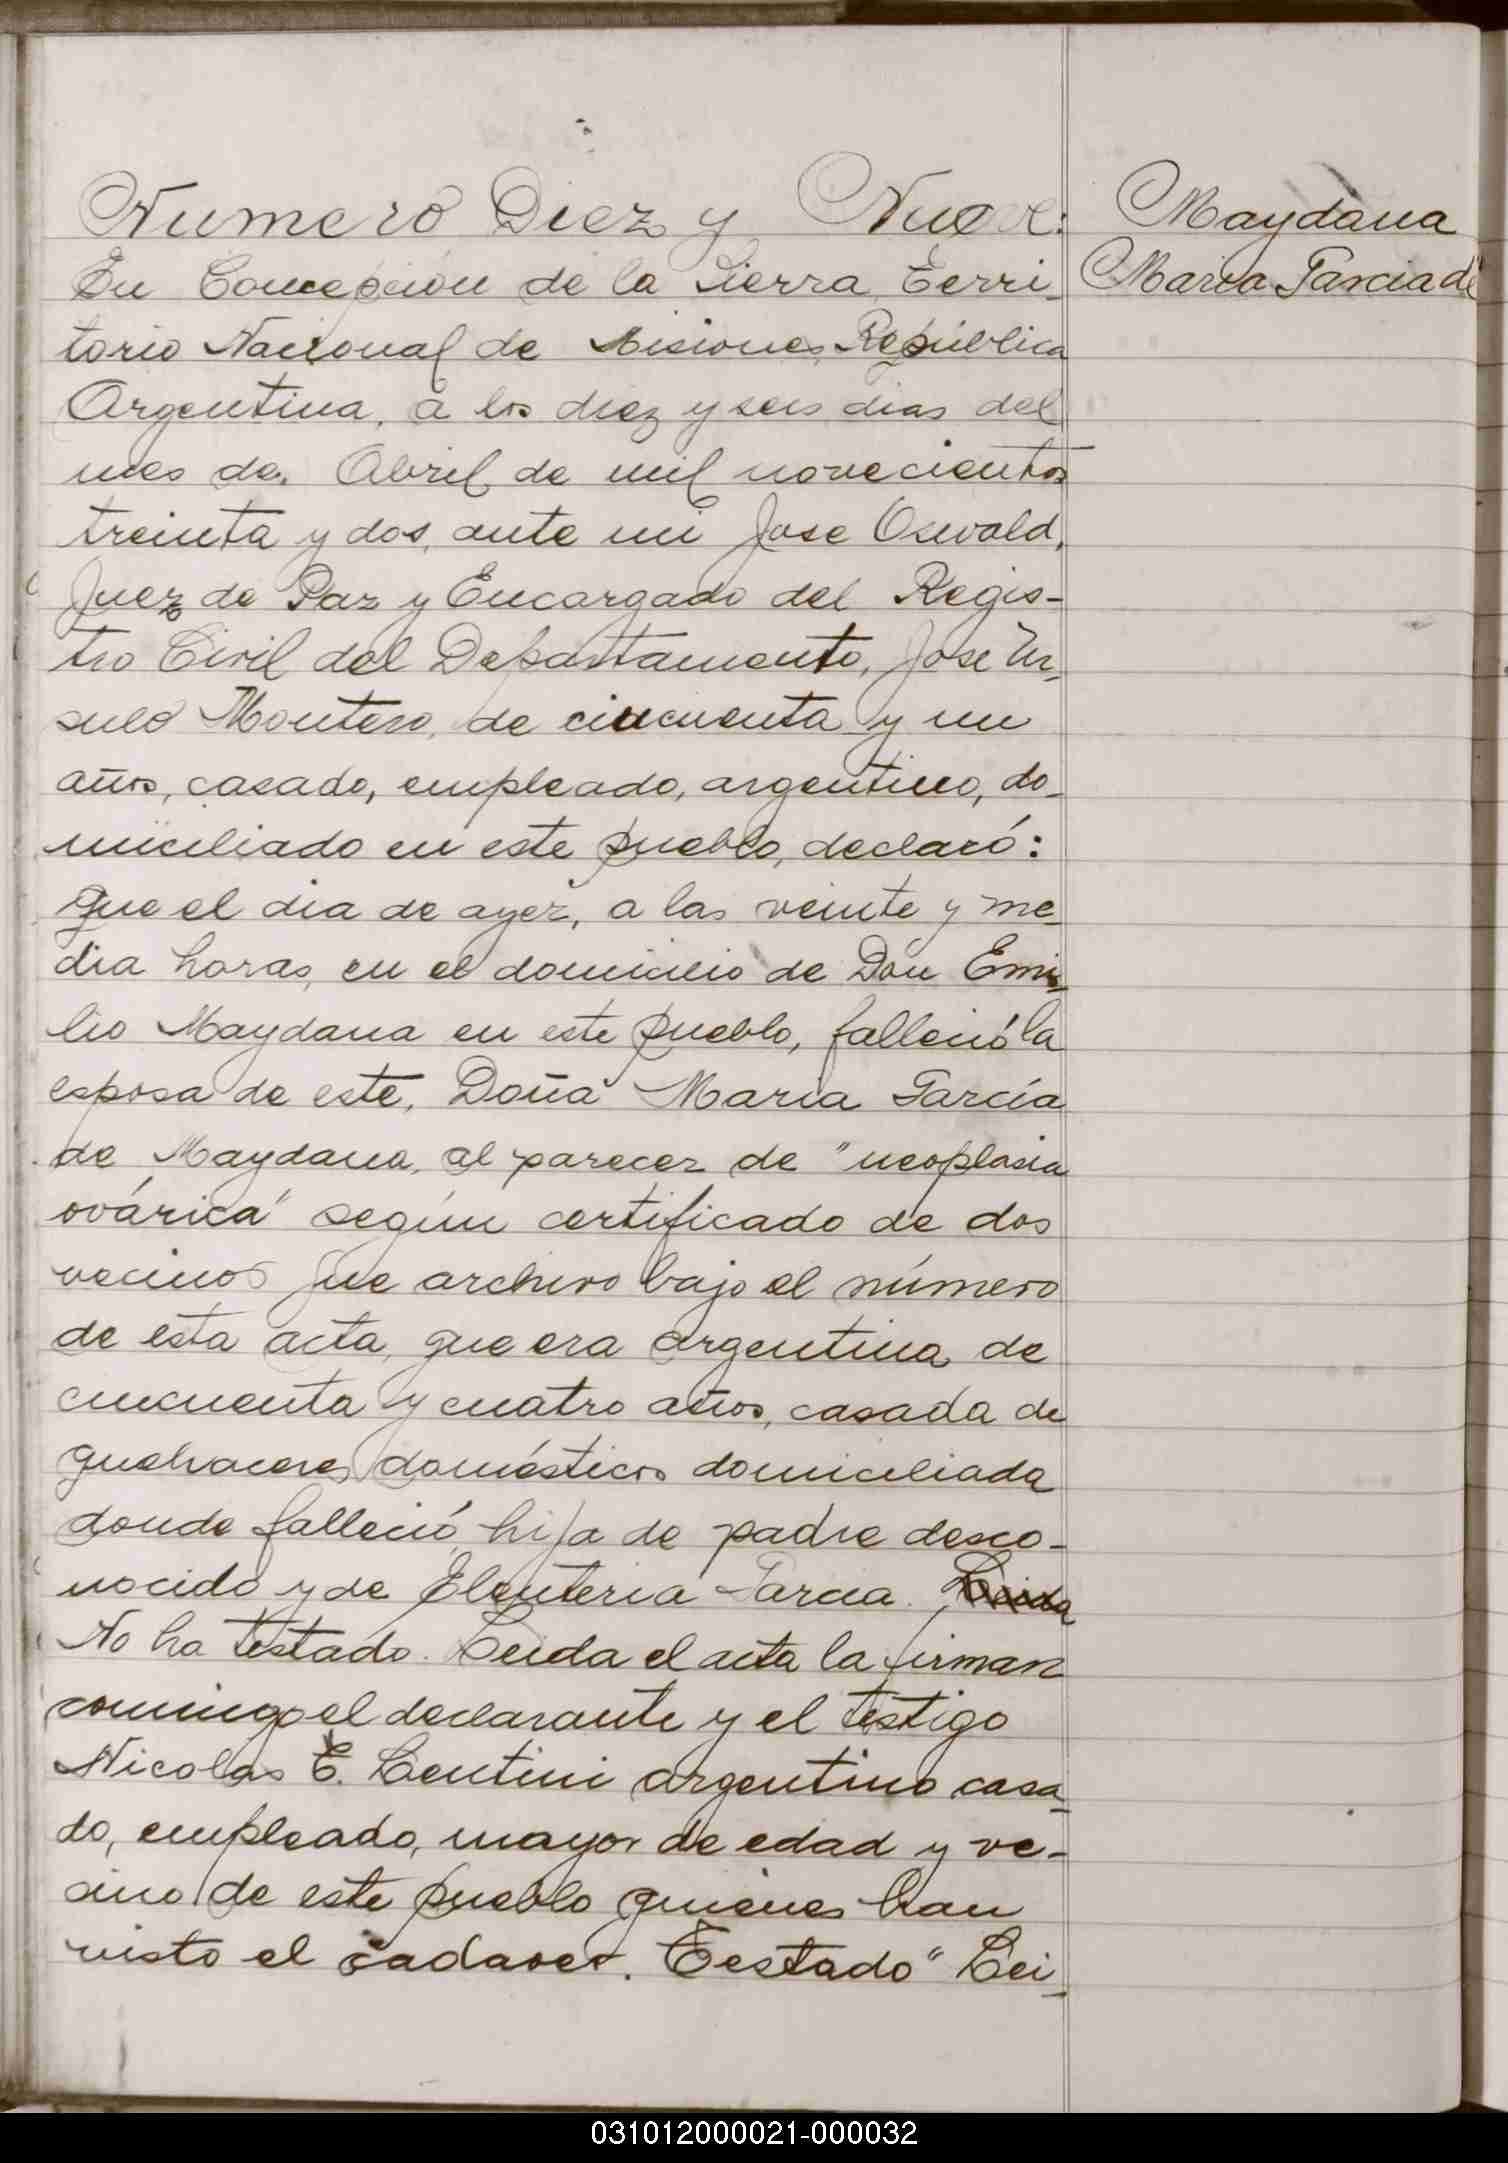 Numero Diez y Nueve:
Maydana
Maria Garcia de
En Concepción de la Sierra, Terri-
torio Nacional de Misiones, República
Argentina, a los diez y seis dias del
mes de. Abril de mil novecientos
treinta y dos, ante mi Jose Oswald,
Juez de Paz y Encargado del Regis-
tro Civil del Departamento, Jose Ur-
sulo Montero, de cincuenta y un
años, casado, empleado, argentino, do-
miciliado en este pueblo, declaró:
que el dia de ayer, a las veinte y me-
dia horas, en el domicilio de Don Emi-
lio Maydana en este pueblo, falleció la
esposa de este, Doña Maria García
de Maydana, al parecer de "neoplasia
ovárica" según certificado de dos
vecinos que archivo bajo el número
de esta acta, que era argentina, de
cincuenta y cuatro años, casada de
quehaceres domésticos domiciliada
donde falleció, hija de padre desco-
nocido y de Eleuteria Garcia. Leida
No ha testado. Leida el acta la firman
conmigo el declarante y el testigo
Nicolas E. Lentini argentino casa-
do, empleado, mayor de edad y ve-
cino de este pueblo quienes han
visto el cadaver. Testado "Lei-
031012000021-000032